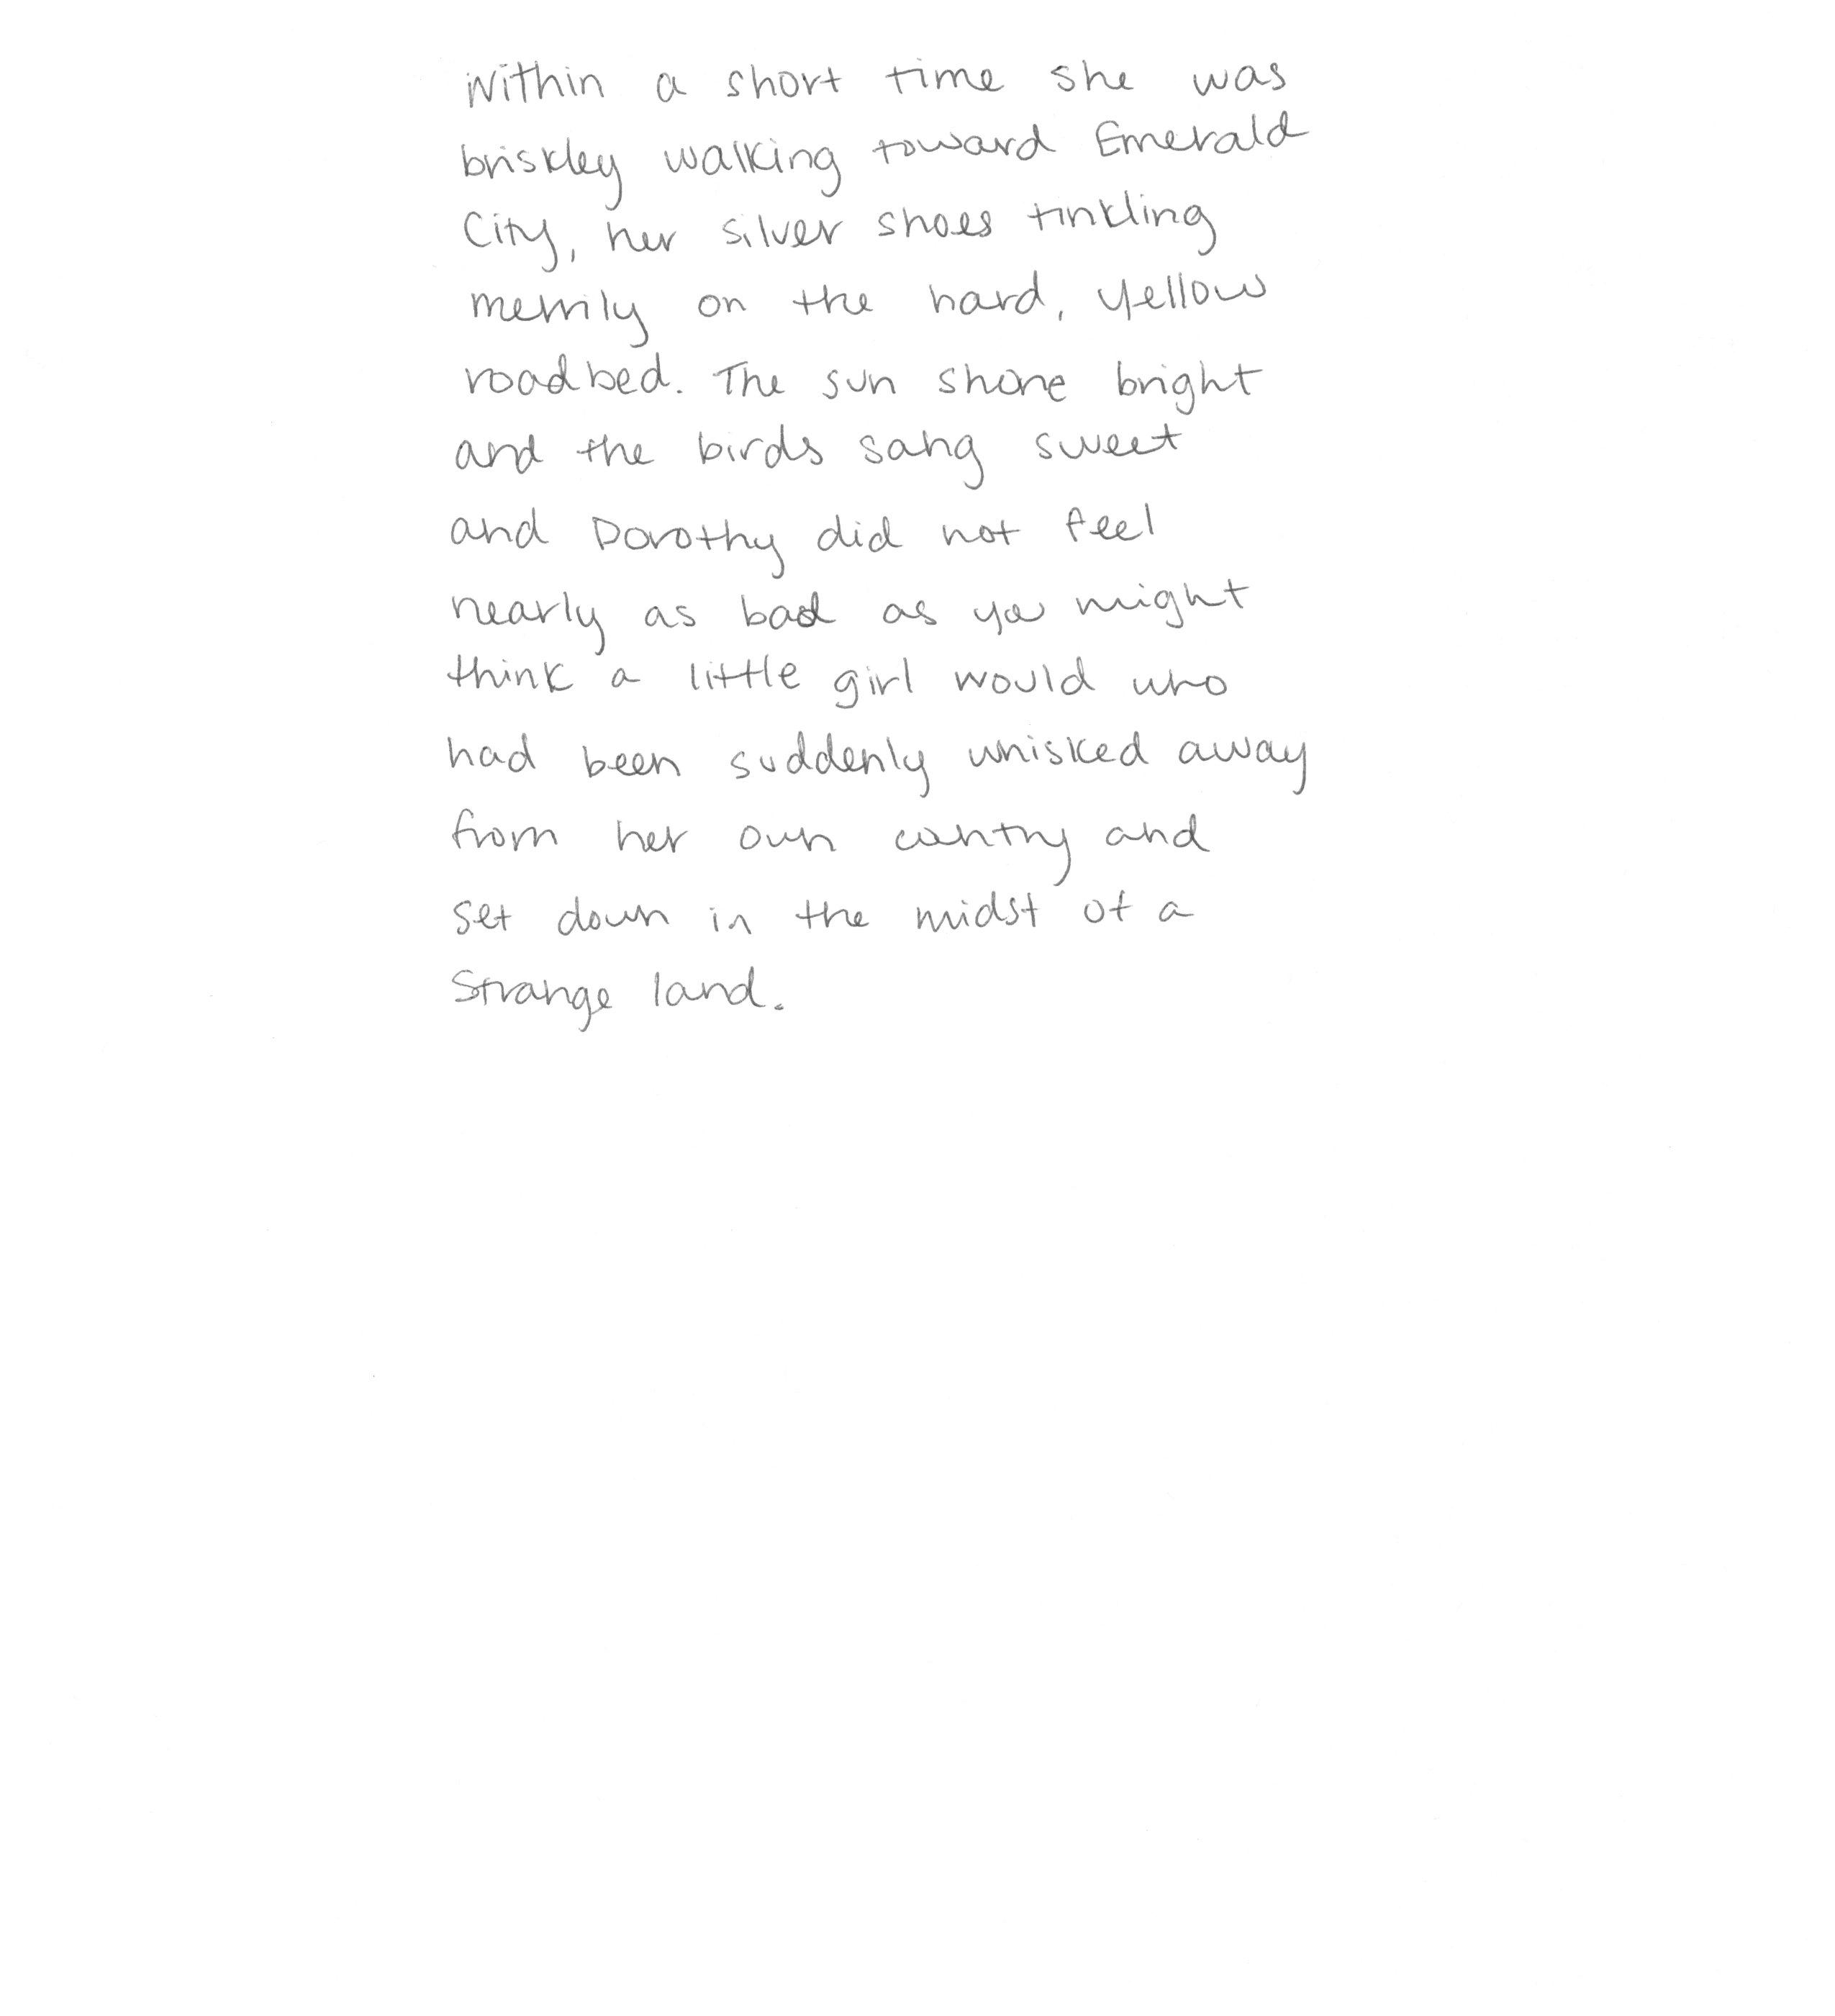 Within a short time she was
briskley walking toward Emerald
City, her silver shoes tinkling
merrily on the hard, yellow
roadbed. The sun shone bright
and the birds sang sweet
and Dorothy did not feel
nearly as bad as you might
think a little girl would who
had been suddenly whisked away
from her own country and
set down in the midst of a
strange land.